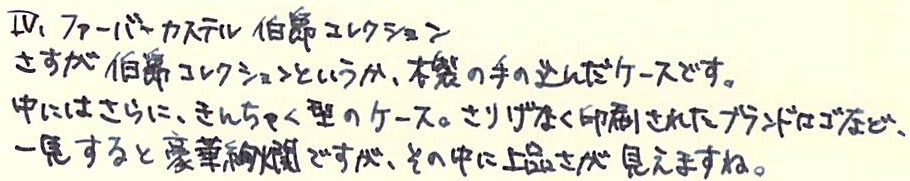 IV. ファーバーカステル 伯爵コレクション
さすが伯爵コレクションというか、木製の手の込んだケースです。
中にはさらに、きんちゃく型のケース。さりげなく印刷されたブランドロゴなど、
一見すると豪華絢爛ですが、その中に上品さが見えますね。